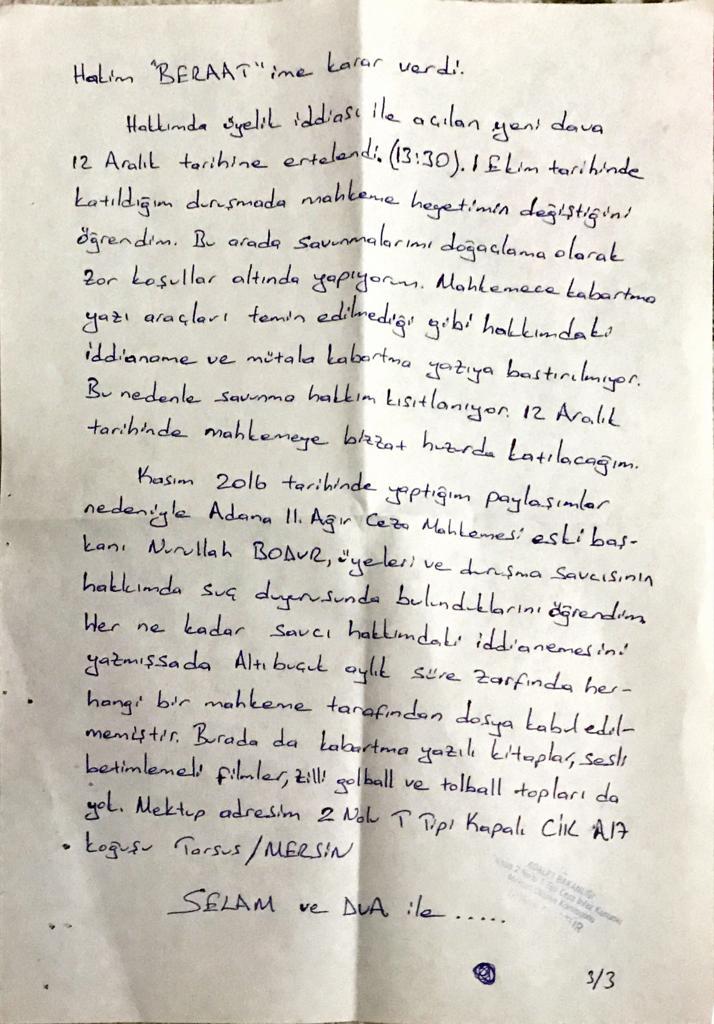 Hakim "BERAAT"ime karar verdi.
Hakkımda üyelik iddiası ile açılan yeni dava
12 Aralık tarihine ertelendi. (13:30). 1 Ekim tarihinde
katıldığım duruşmada mahkeme heyetimin değiştiğini
öğrendim. Bu arada savunmalarımı doğaçlama olarak
zor koşullar altında yapıyorum. Mahkemece kabartma
yazı araçları temin edilmediği gibi hakkımdaki
iddianame ve mütala kabartma yazıya bastırılmıyor.
Bu nedenle savunma hakkım kısıtlanıyor. 12 Aralık
tarihinde mahkemeye bizzat huzurda katılacağım.
Kasım 2016 tarihinde yaptığım paylaşımlar
nedeniyle Adana 11. Ağır Ceza Mahkemesi eski baş-
kanı Nurullah BODUR, üyeleri ve duruşma savcısının
hakkımda suç duyurusunda bulunduklarını öğrendim.
Her ne kadar savcı hakkımdaki iddianemesini
yazmışsada Altıbuçuk aylık süre zarfında her-
hangi bir mahkeme tarafından dosya kabul edil-
memiştir. Burada da kabartma yazılı kitaplar, sesli
betimlemeli filmler, zilli golball ve tolball topları da
yok. Mektup adresim 2 Nolu T Tipi Kapalı CİK A17
koğuşu Tarsus/MERSİN
SELAM ve DUA ile .....
ADALET BAKANLIĞI
3/3